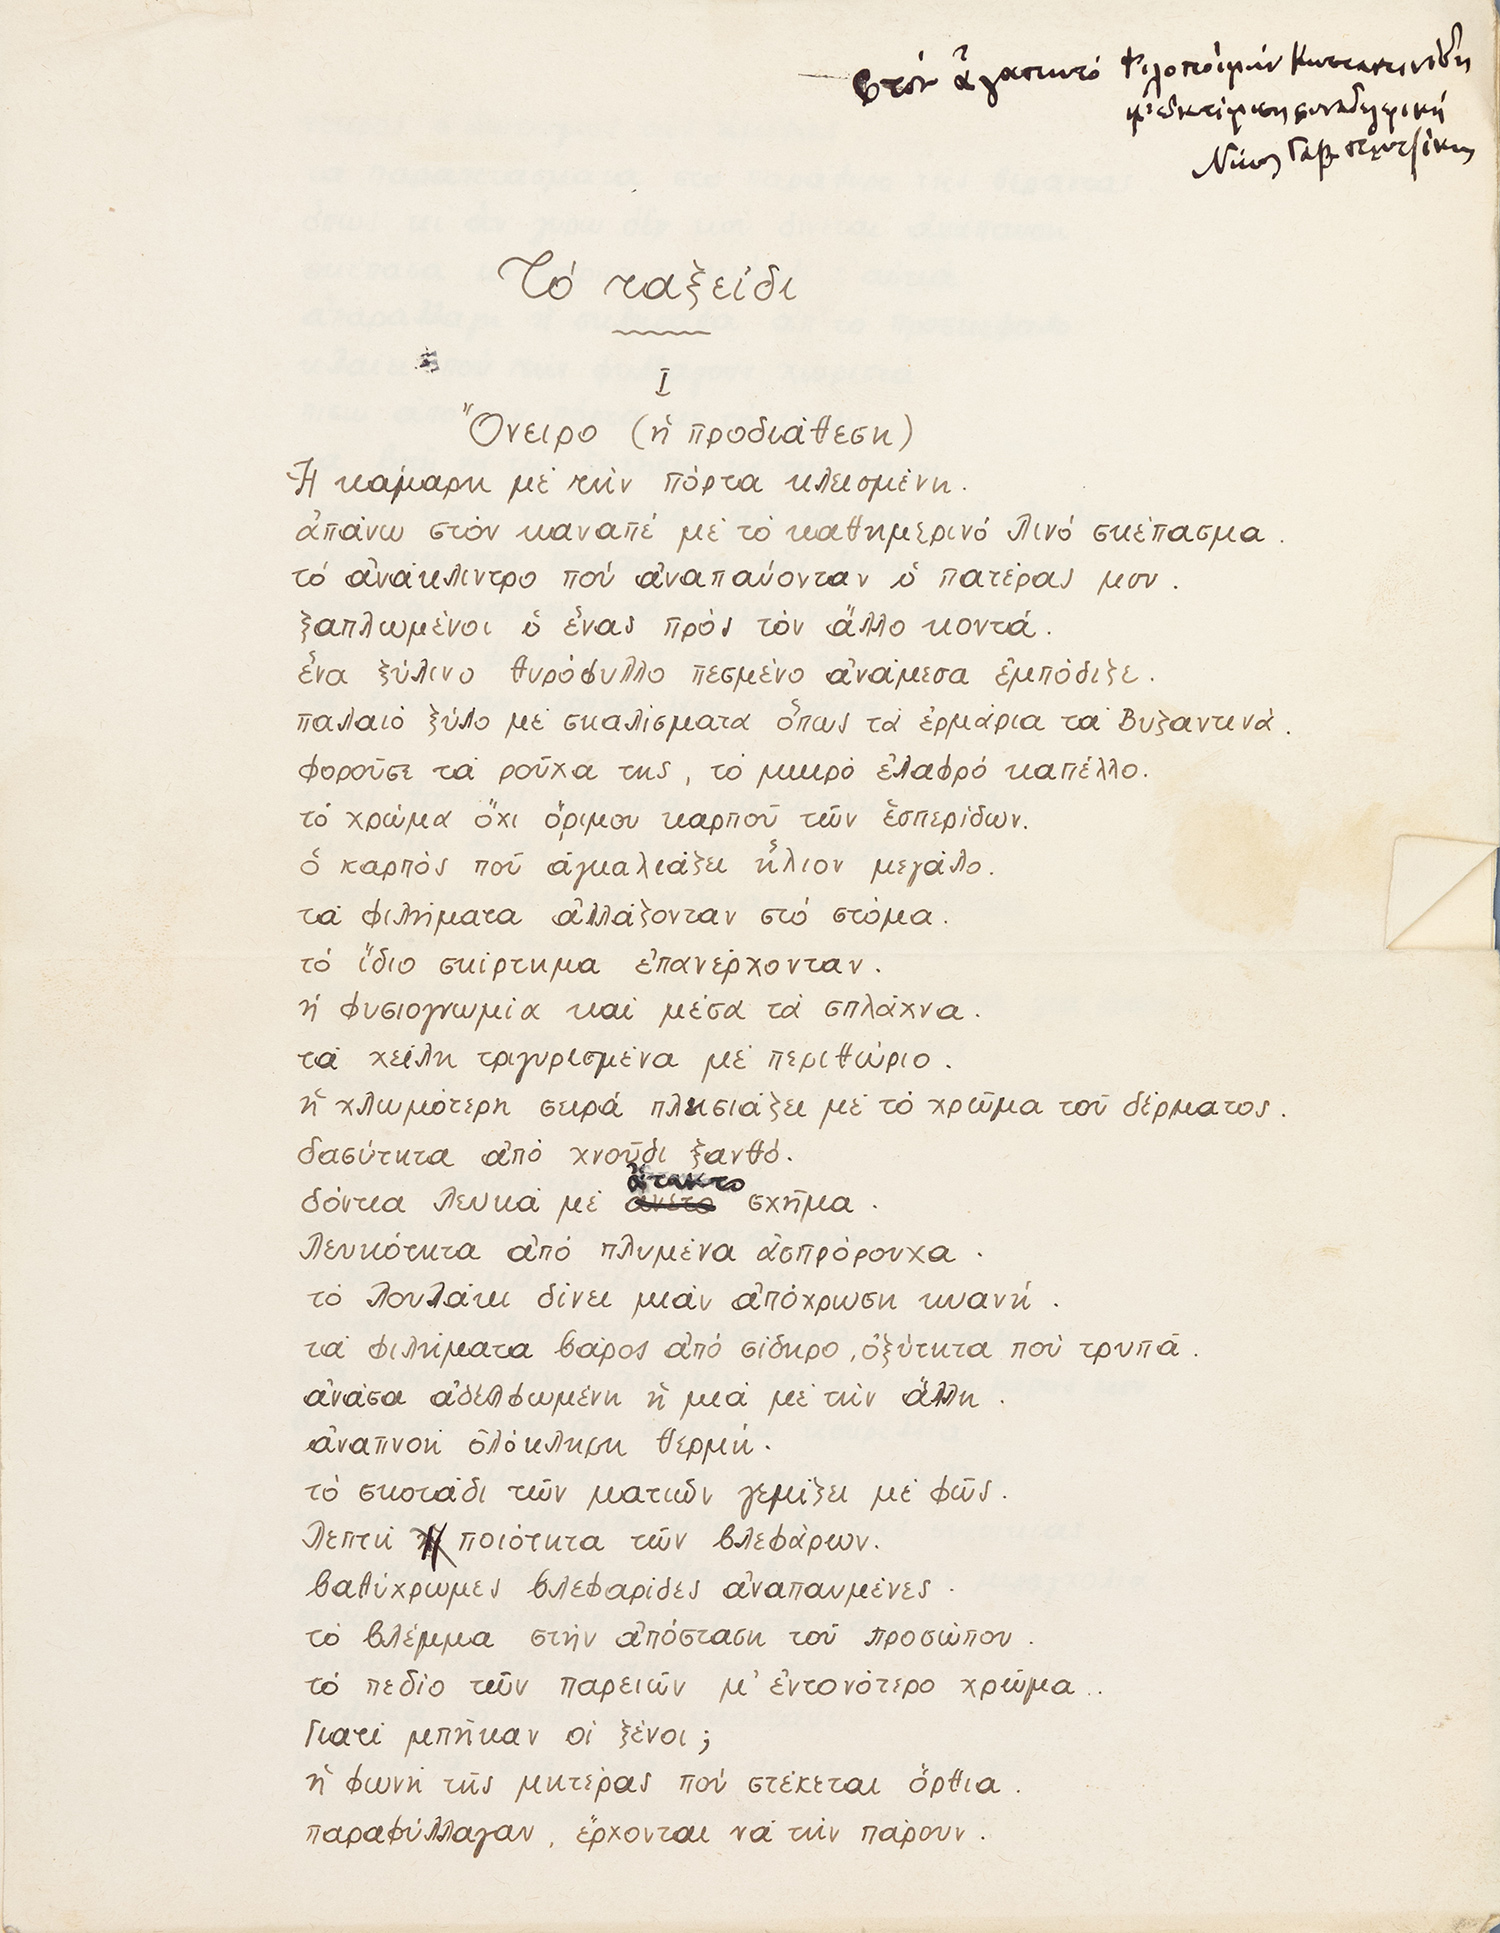 Στόν ἀγαπητό Φιλοποίμην Κωνσταντινίδη
μ' ἐκτίμηση συναδελφική
Νίκος Γαβ. Πεντζίκης
Τό ταξεῖδι
I
Ὄνειρο (ἡ προδιάθεση)
Ἡ κάμαρη μέ τήν πόρτα κλεισμένη.
ἀπάνω στόν καναπέ μέ τό καθημερινό λινό σκέπασμα.
τό ἀνάκλιντρο πού ἀναπαύονταν ὁ πατέρας μου.
ξαπλωμένοι ὁ ἕνας πρός τόν ἄλλο κοντά.
ἕνα ξύλινο θυρόφυλλο πεσμένο ἀνάμεσα ἐμπόδιζε.
παλαιό ξύλο μέ σκαλίσματα ὅπως τά ἑρμάρια τά Βυζαντινά.
φοροῦσε τά ροῦχα της, τό μικρό ἐλαφρό καπέλλο.
τό χρώμα ὄχι ὅριμου καρποῦ τῶν ἑσπερίδων.
ὁ καρπός ποῦ ἀγκαλιάζει ἥλιον μεγάλο.
τά φιλήματα ἀλλάζονταν στό στόμα.
τό ἴδιο σκίρτημα ἐπανέρχονταν.
ἡ φυσιογνωμία καί μέσα τά σπλάχνα.
τά χείλη τριγυρισμένα μέ περιθώριο.
ἡ χλωμότερη σειρά πλησιάζει μέ τό χρῶμα τοῦ δέρματος.
δασύτητα ἀπό χνοῦδι ξανθό.
ἄτακτο
δόντια λευκά μέ ἄνετο σχῆμα.
λευκότητα ἀπό πλυμένα ἀσπρόρουχα.
τό λουλάκι δίνει μιάν ἀπόχρωση κυανή.
τά φιλήματα βάρος ἀπό σίδηρο, ὀξύτητα πού τρυπᾶ.
ἀνάσα ἀδελφωμένη ἡ μιά μέ τήν ἄλλη.
ἀναπνοή ὁλόκληρη θερμή.
τό σκοτάδι τῶν ματιῶν γεμίζει μέ φῶς.
λεπτή ποιότητα τῶν βλεφάρων.
βαθύχρωμες βλεφαρίδες ἀναπαυμένες.
τό βλέμμα στήν ἀπόσταση τοῦ προσώπου.
τό πεδίο τῶν παρειῶν μ' ἐντονότερο χρῶμα..
Γιατί μπῆκαν οἱ ξένοι;
ἡ φωνή τῆς μητέρας πού στέκεται ὄρθια.
παραφύλλαγαν, ἔρχονται νά τήν πάρουν.